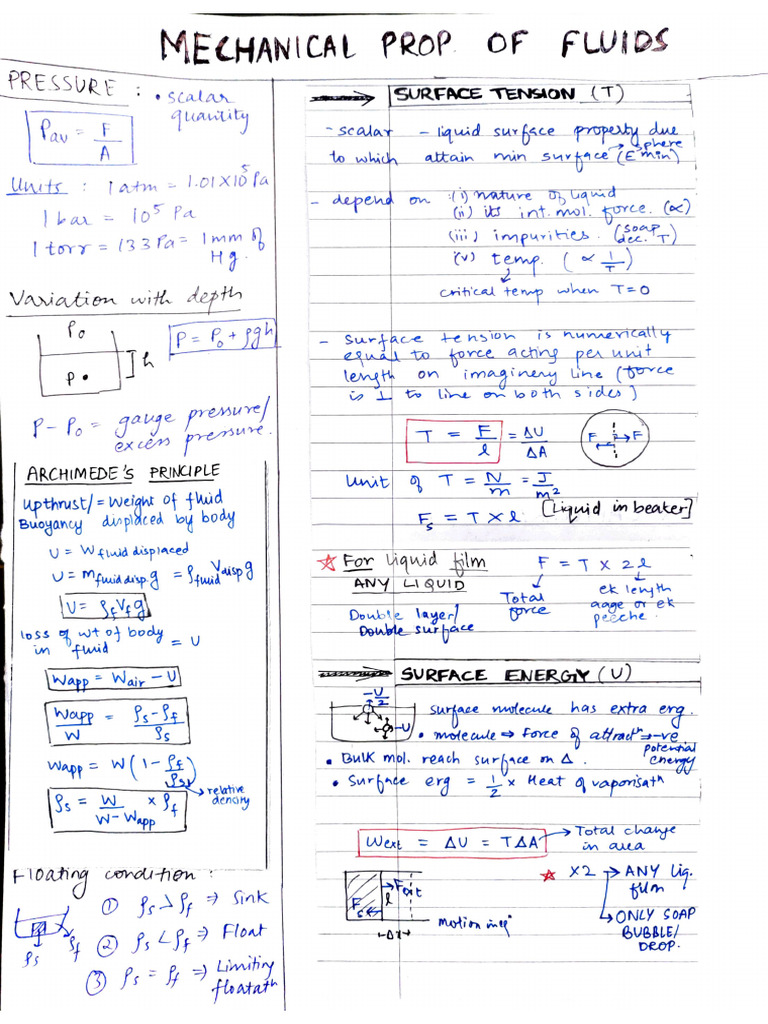 MECHANICAL PROP. OF FLUIDS
PRESSURE : • scalar quantity
Pav = F/A
Units : 1 atm = 1.01 × 10⁵ Pa
1 bar = 10⁵ Pa
1 torr = 133 Pa = 1 mm of Hg.
Variation with depth
P₀
P = P₀ + ρgh
h
P •
P - P₀ = gauge pressure/
excess pressure.
ARCHIMEDE'S PRINCIPLE
Upthrust/ = Weight of fluid
Buoyancy displaced by body
U = W fluid displaced
U = m fluid disp. g = ρ fluid V disp g
U = ρf Vf g
loss of wt of body
in fluid = U
Wapp = Wair - U
Wapp/W = (ρs - ρf)/ρs
Wapp = W (1 - ρf/ρs)
→ relative
density
ρs = W/(W - Wapp) × ρf
Floating condition :
① ρs > ρf ⇒ Sink
② ρs < ρf ⇒ Float
③ ρs = ρf ⇒ Limiting
floatatⁿ
ρs
ρf
SURFACE TENSION (T)
- scalar - liquid surface property due
to which attain min surface (E min)
→ sphere
- depend on :(i) nature of liquid
(ii) its int. mol. force. (∝)
(iii) impurities. (soap dec. T)
(v) temp. (∝ 1/T)
critical temp when T=0
- Surface tension is numerically
equal to force acting per unit
length on imaginery line (force
is ⊥ to line on both sides)
T = F/l = ΔU/ΔA
F F
Unit of T = N/m = J/m²
Fs = T × l [Liquid in beaker]
☆ For liquid film F = T × 2l
ANY LIQUID
Total
force
ek length
aage or ek
peeche.
Double layer/
Double surface
SURFACE ENERGY (U)
-U/2
-U
surface molecule has extra erg.
• molecule ⇒ Force of attractⁿ → -ve
potential
energy
• Bulk mol. reach surface on Δ.
• Surface erg = 1/2 × Heat of vaporisatⁿ
Wext = ΔU = TΔA → Total change
in area
☆ ×2 → ANY liq.
film
→ ONLY SOAP
BUBBLE/
DROP.
Fs
l
Fext
Δx